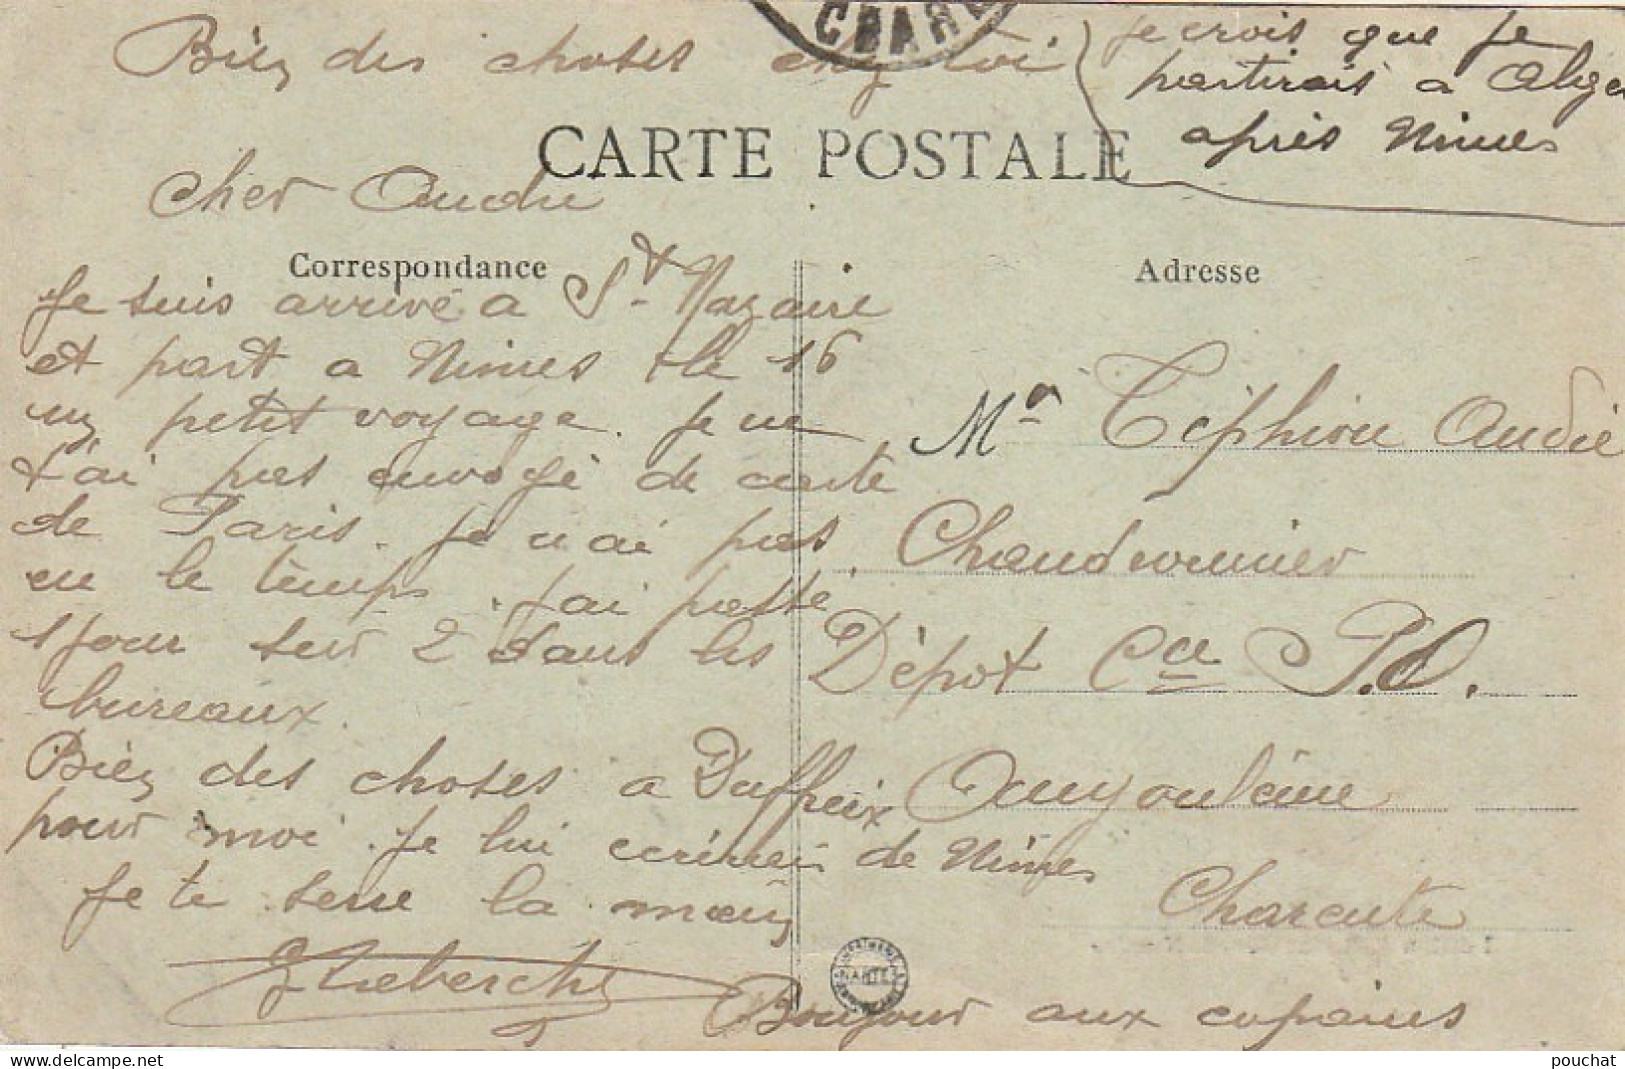 CHAR
Bien des choses chez toi
je crois que je
partirais a Alger
après Nimes
CARTE POSTALE
Cher Andre
Correspondance
Je suis arrivé a St Nazaire
et part a Nimes le 16
un petit voyage. Je ne
t'ai pas envoyé de carte
de Paris. Je n'ai pas
eu le temps. J'ai passé
1 jour sur 2 dans les
bureaux.
Bien des choses a Duffreix
pour moi. Je lui ecrirai de Nimes
Je te serre la main
Bonjour aux copains
Adresse
Mr Téphiou André
Chaudronnier
Dépôt Cie P.O.
Angoulème
Charente
NANTES
delcampe.net
pouchat